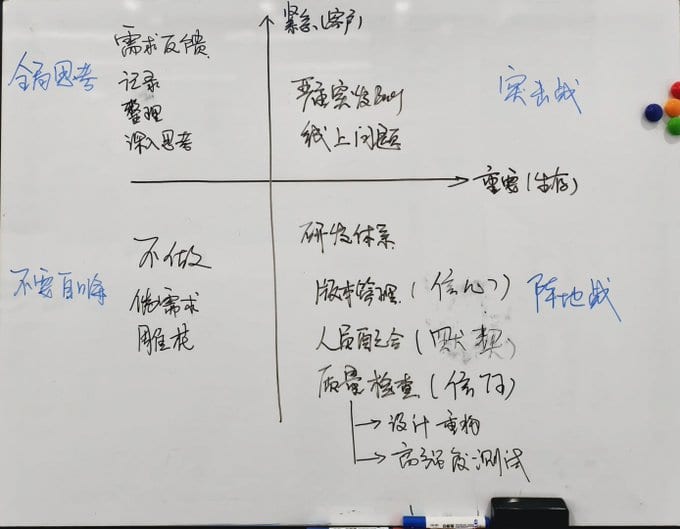 紧急(客户)
需求反馈
全局思考
记录
整理
深入思考
严重突发Bug
线上问题
突击战
重要(生存)
不做
伪需求
雕花
不要自嗨
研发体系
版本管理(信心)
人员配合(默契)
质量检查(信任)
设计重构
高强度测试
阵地战